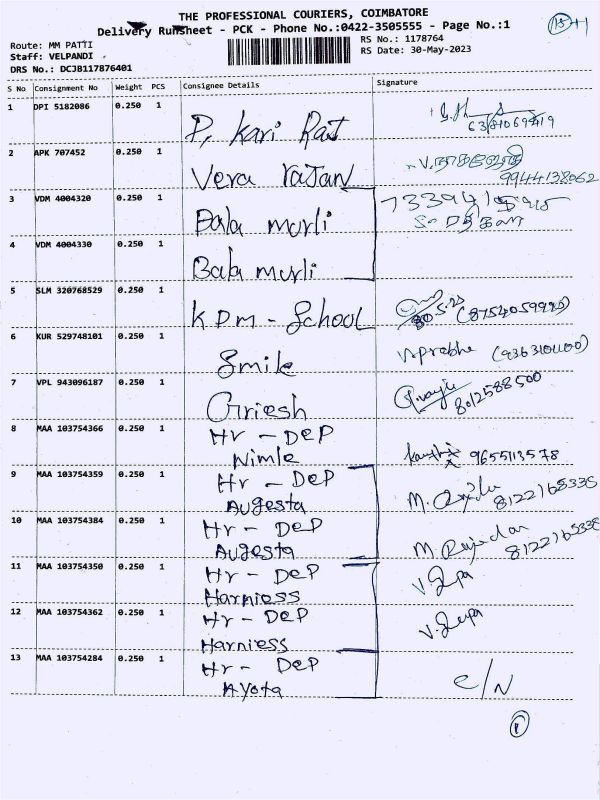 THE PROFESSIONAL COURIERS, COIMBATORE
Delivery Runsheet - PCK - Phone No.:0422-3505555 - Page No.:1
15+1
Route: MM PATTI
RS No.: 1178764
Staff: VELPANDI
RS Date: 30-May-2023
DRS No.: DCJB117876401
S No Consignment No Weight PCS Consignee Details Signature
1 DPI 5182086 0.250 1 P. Kari Raj
2 APK 707452 0.250 1 Vera rajan
9944138062
3 VDM 4004320 0.250 1 Bala murli
4 VDM 4004330 0.250 1 Bala murli
5 SLM 320768529 0.250 1 KDM - School
6 KUR 529748101 0.250 1 Smile
7 VPL 943096187 0.250 1 Griesh
8012588500
8 MAA 103754366 0.250 1 Hr - DEP
Nimle
9655113578
9 MAA 103754359 0.250 1 Hr - DEP
Augesta
8122165338
10 MAA 103754384 0.250 1 Hr - DEP
Augesta
8122165338
11 MAA 103754350 0.250 1 Hr - DEP
Harniess
12 MAA 103754362 0.250 1 Hr - DEP
Harniess
13 MAA 103754284 0.250 1 Hr - DEP
Ayota
e/N
1